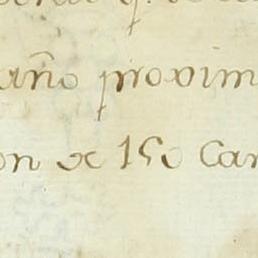 año proxim
on x 150 Car